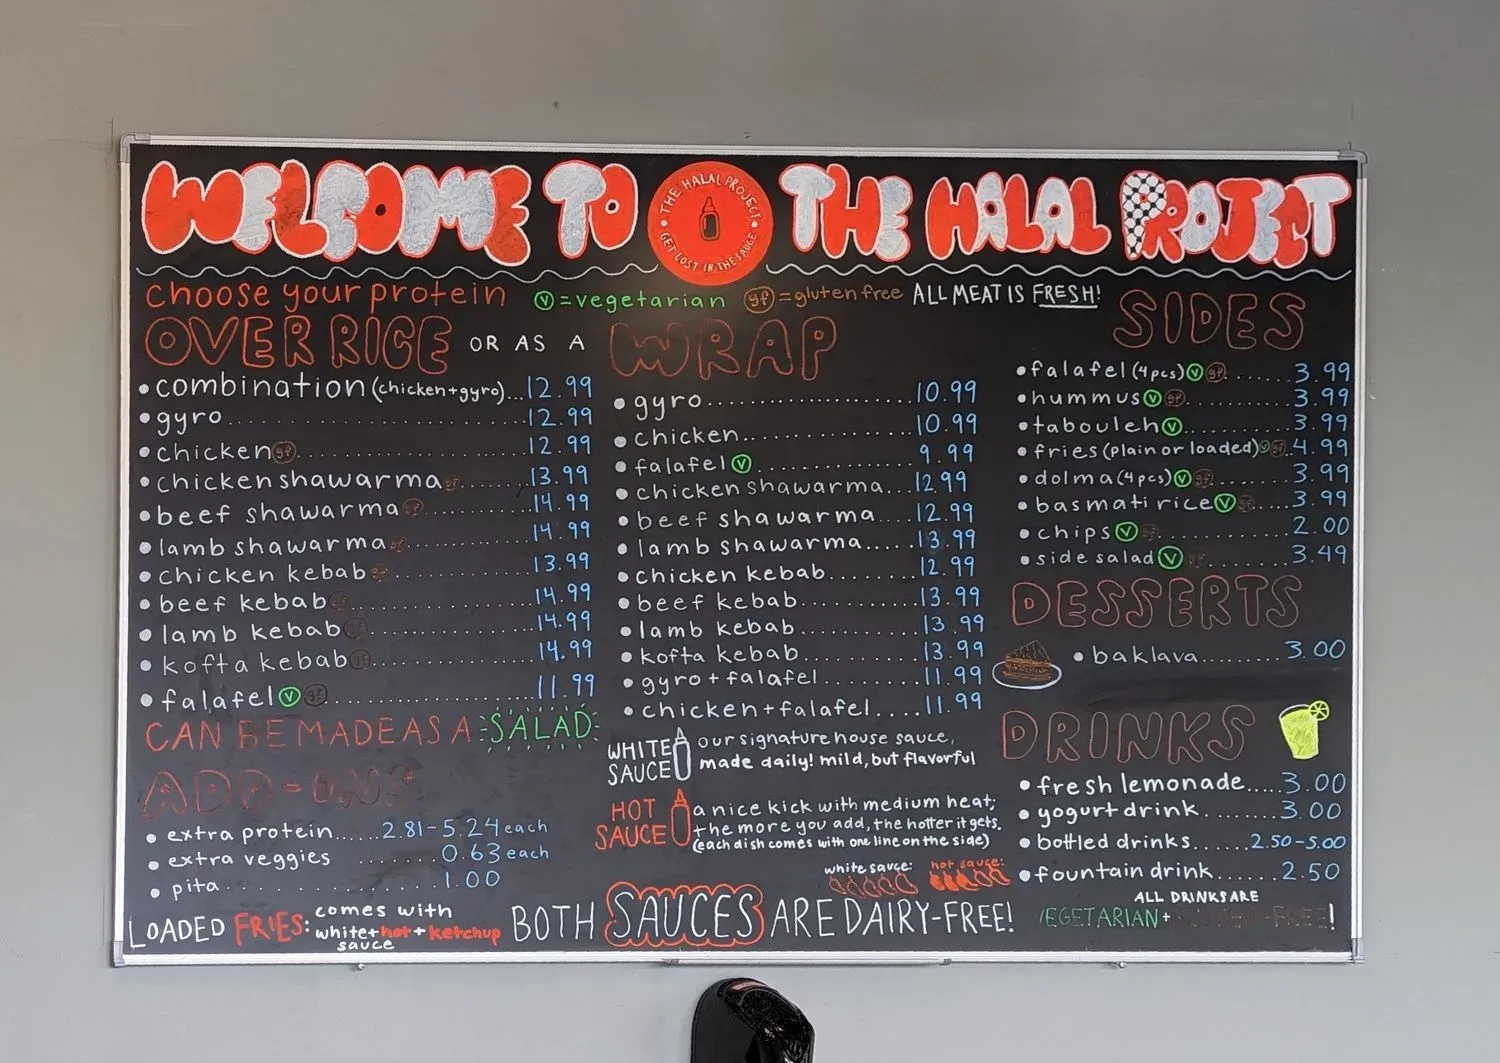 WELCOME TO THE HALAL PROJECT
THE HALAL PROJECT
GET LOST IN THE SAUCE
choose your protein
v = vegetarian gf = gluten free ALL MEAT IS FRESH!
OVER RICE OR AS A WRAP
• combination (chicken+gyro)...12.99
• gyro 12.99
• chicken gf 12.99
• chicken shawarma gf 13.99
• beef shawarma gf 14.99
• lamb shawarma gf 14.99
• chicken kebab gf 13.99
• beef kebab gf 14.99
• lamb kebab gf 14.99
• kofta kebab gf 14.99
• falafel v gf 11.99
CAN BE MADE AS A SALAD
• gyro 10.99
• chicken 10.99
• falafel v 9.99
• chicken shawarma 12.99
• beef shawarma 12.99
• lamb shawarma 13.99
• chicken kebab 12.99
• beef kebab 13.99
• lamb kebab 13.99
• kofta kebab 13.99
• gyro + falafel 11.99
• chicken + falafel 11.99
ADD-ONS
• extra protein 2.81-5.24 each
• extra veggies 0.63 each
• pita 1.00
LOADED FRIES: comes with
white + hot + ketchup
sauce
WHITE SAUCE
our signature house sauce,
made daily! mild, but flavorful
HOT SAUCE
a nice kick with medium heat;
the more you add, the hotter it gets.
(each dish comes with one line on the side)
white sauce: hot sauce:
BOTH SAUCES ARE DAIRY-FREE!
SIDES
• falafel (4pcs) v gf 3.99
• hummus v gf 3.99
• tabouleh v 3.99
• fries (plain or loaded) v gf 4.99
• dolma (4pcs) v gf 3.99
• basmati rice v gf 3.99
• chips v gf 2.00
• side salad v gf 3.49
DESSERTS
• baklava 3.00
DRINKS
• fresh lemonade 3.00
• yogurt drink 3.00
• bottled drinks 2.50-5.00
• fountain drink 2.50
ALL DRINKS ARE
VEGETARIAN + GLUTEN-FREE!